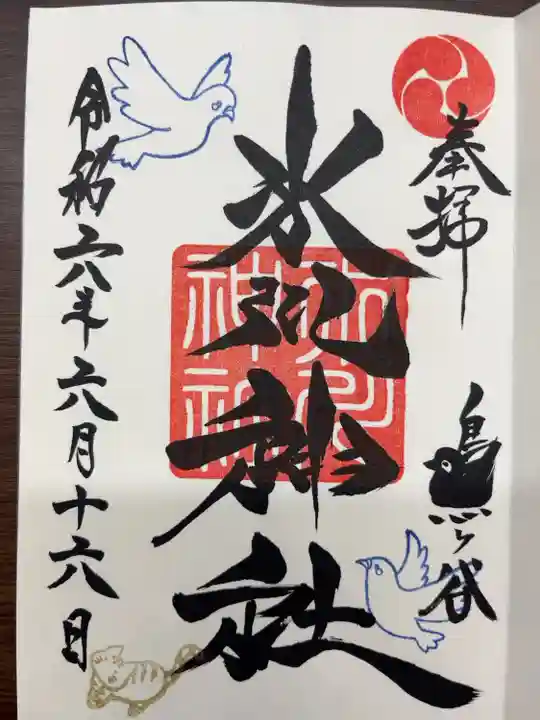 奉拝
鳩ヶ谷
氷川神社
令和六年六月十六日